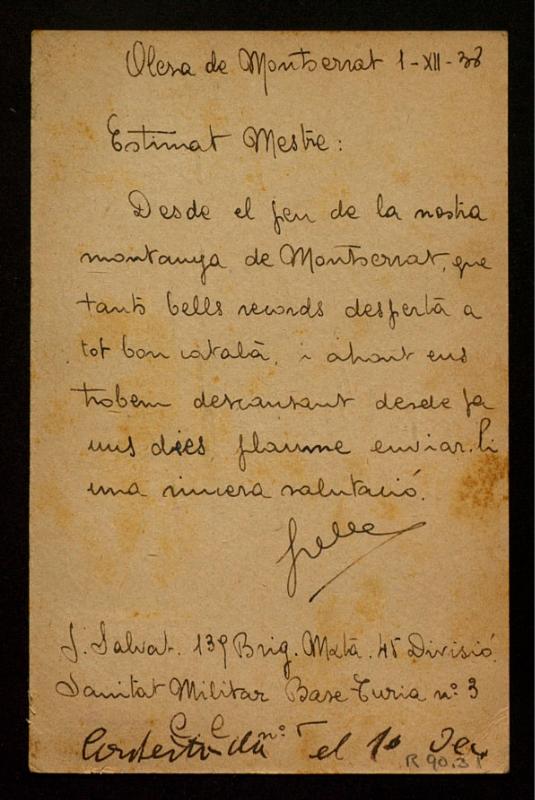 Olesa de Montserrat 1-XII-38
Estimat Mestre:
Desde el peu de la nostra
montanya de Montserrat, que
tants bells records despertà a
tot bon català, i ahont ens
trobem descansant desde fa
uns dies, plaume enviar-li
una sincera salutació.
J. Salvat. 139 Brig. Mxtà. 45 Divisió.
Sanitat Militar Base Turia nº 3
C C nº 5
el 10 Dec
R 90.31